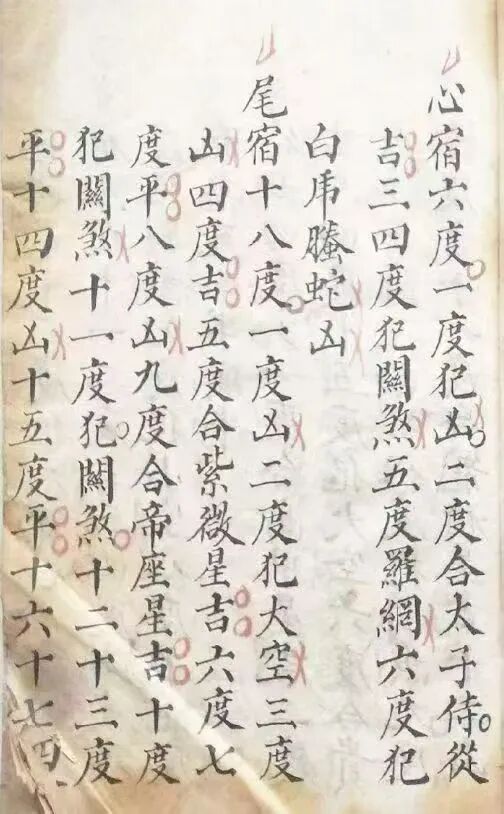 心宿六度一度犯凶二度合太子侍從
吉三四度犯關煞五度羅網六度犯
白虎螣蛇凶
尾宿十八度一度凶二度犯大空三度
凶四度吉五度合紫微星吉六度七
度平八度凶九度合帝座星吉十度
犯關煞十一度犯關煞十二十三度
平十四度凶十五度平十六十七四